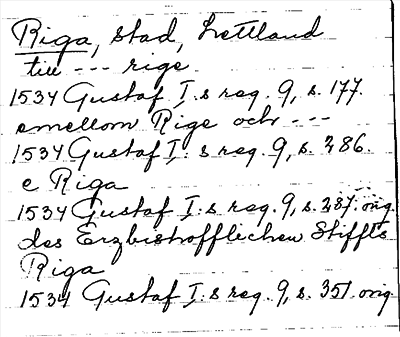 Riga, stad, Lettland
till --- rige
1534 Gustaf I:s reg. 9, s. 177.
emellom Rige och ---
1534 Gustaf I:s reg. 9, s. 286.
e Riga
1534 Gustaf I:s reg. 9, s. 287. orig.
des Erzbishofflichen Stiffts
Riga
1534 Gustaf I:s reg. 9, s. 351 orig.